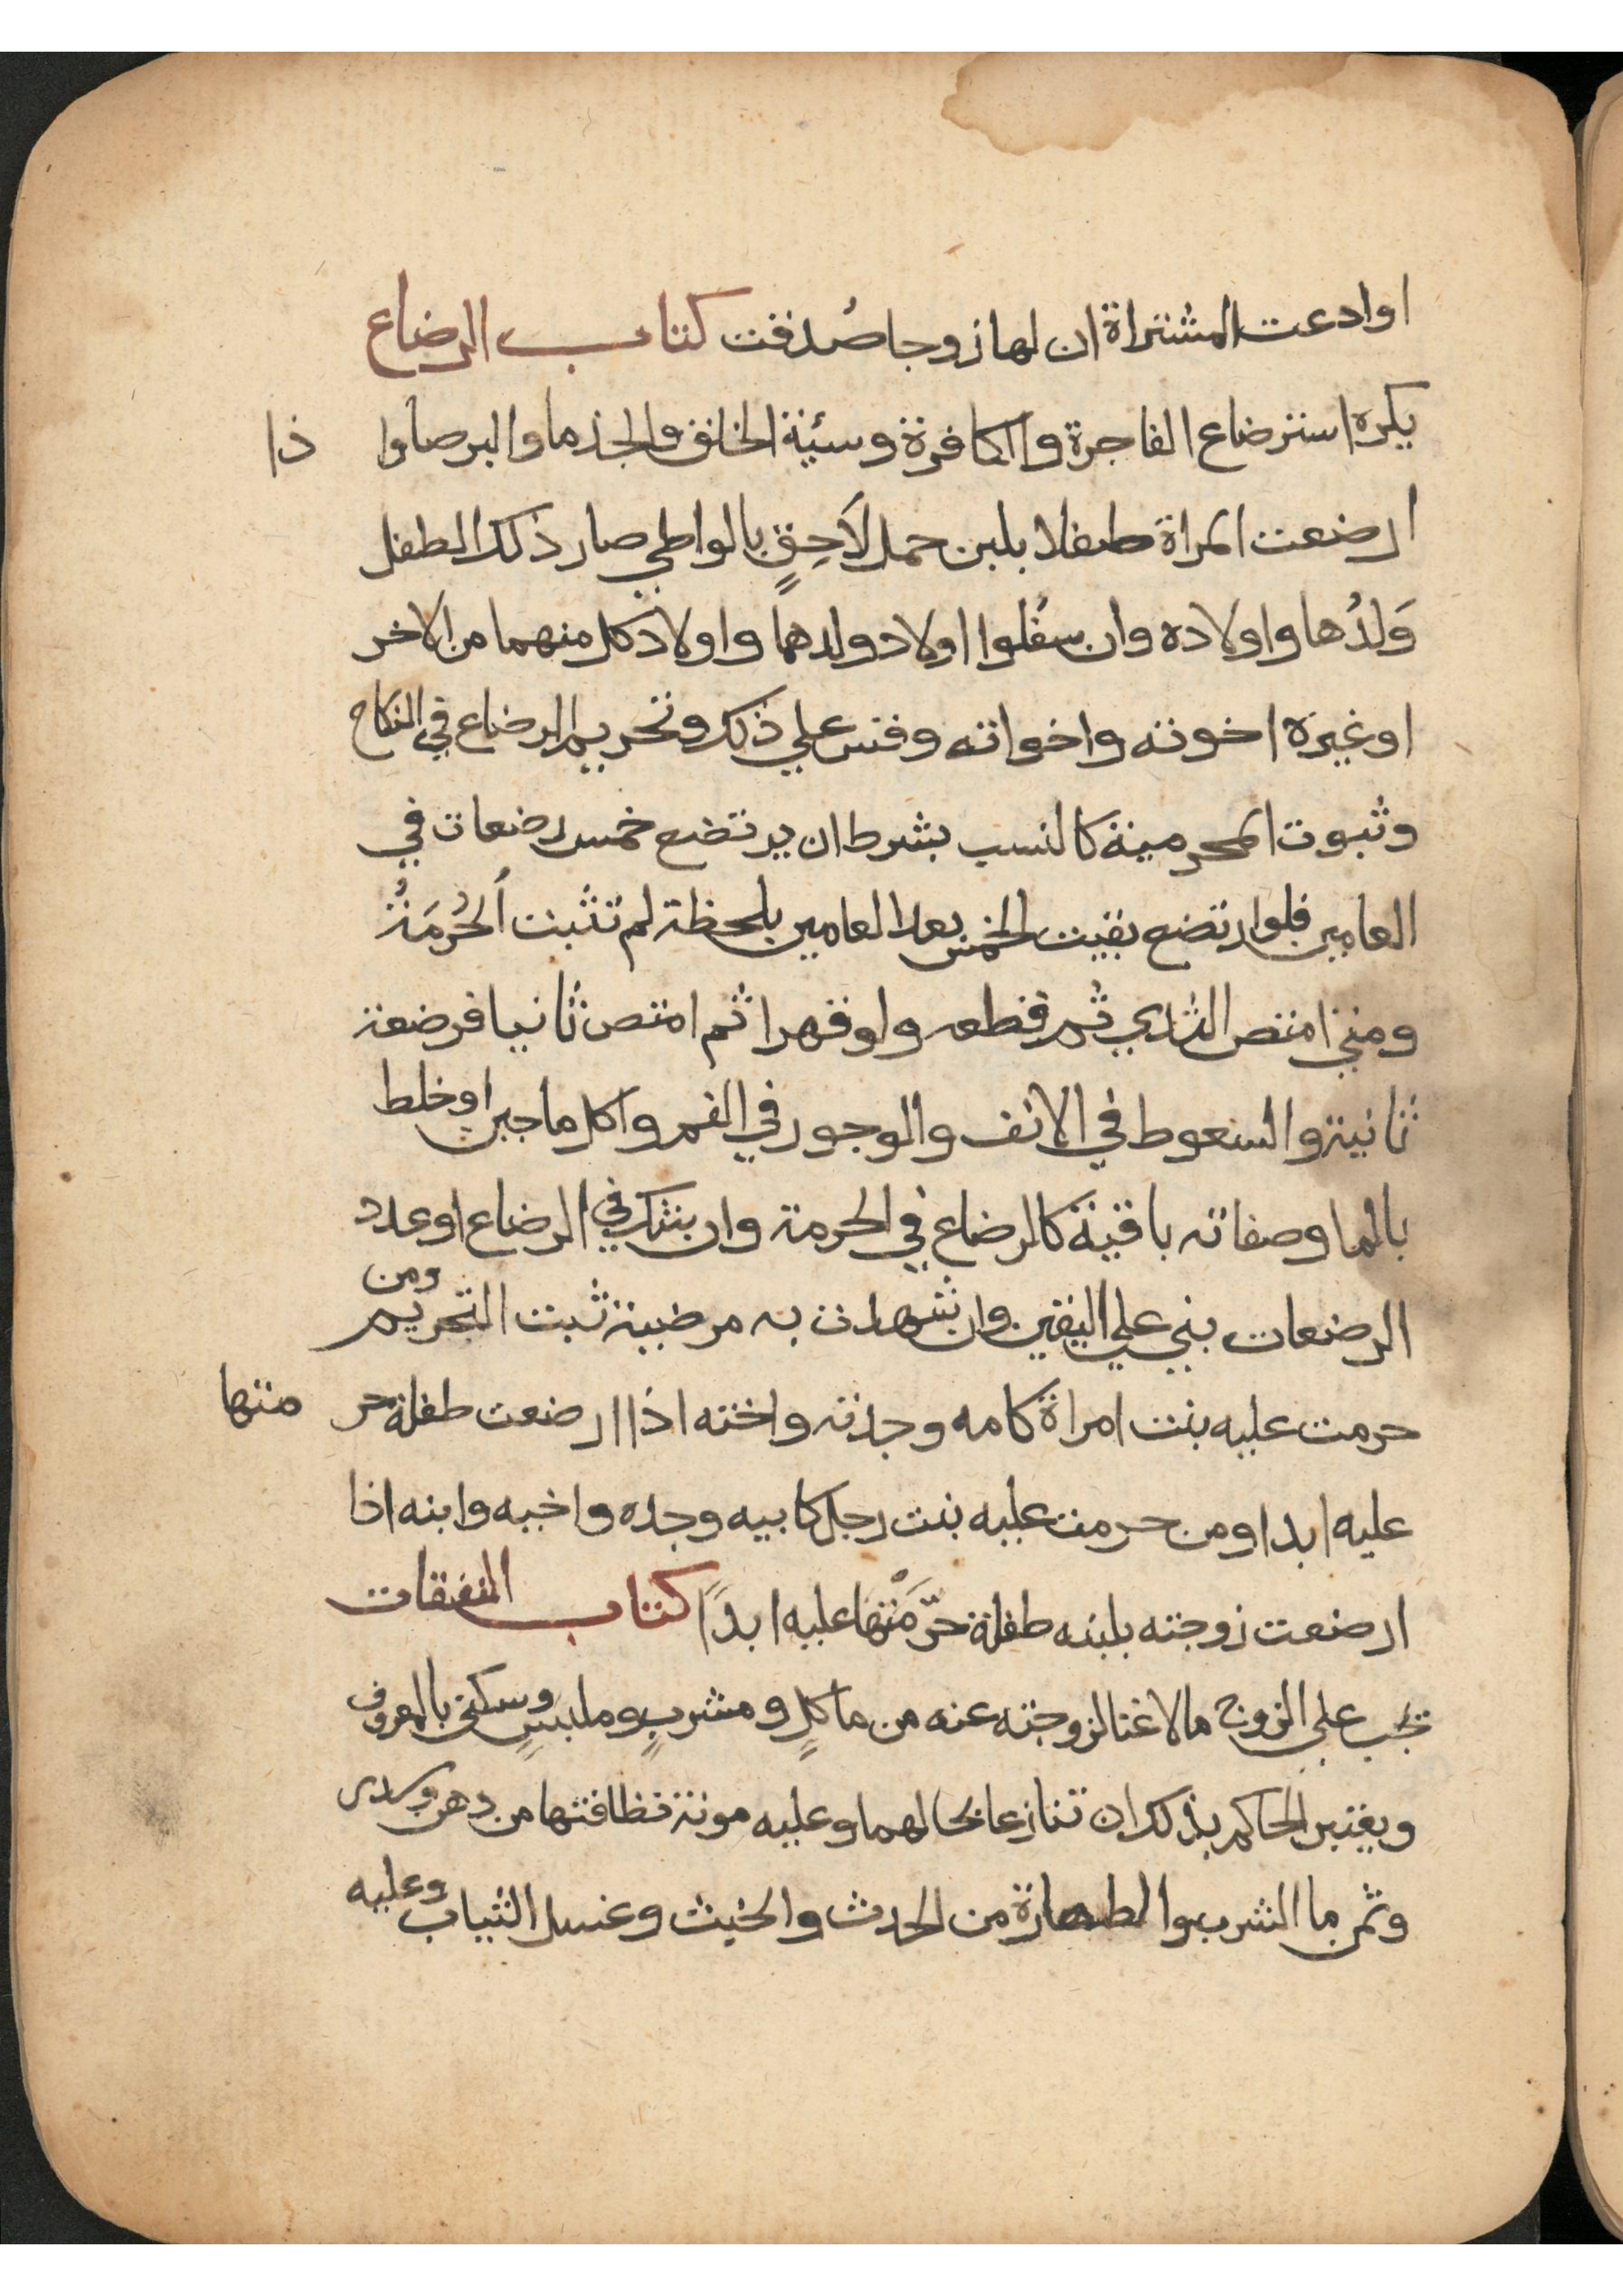 او ادعت المشتراة ان لها زوجا صُدقت كتاب الرضاع
يكره استرضاع الفاجرة والكافرة وسيئة الخلق والجذما والبرصا وا ذا
ارضعت المراة طفلا بلبن حمل لَاحِقٍ بالواطي صار ذلك الطفل
وَلدُها واولاده وان سفُلوا اولاد ولدهما واولاد كل منهما من الاخر
او غيره اخوته واخواته وقس علي ذلك وتحريم الرضاع في النكاح
وثبوت المحرمية كالنسب بشرط ان يرتضع خمس رضعات في
العامين فلو ارتضع بقيت الخمس بعد العامين بلحظة لم تثبت الحُرمَةُ
ومتي امتص الثدي ثم قطعه ولو قهرا ثم امتص ثانيا فرضعة
ثانية والسعوط في الانف والوجور في الفم واكل ما جبن او خلط
بالما وصفاته باقية كالرضاع في الحرمة وان شك في الرضاع او عدد
الرضعات بني علي اليقين وان شهدت به مرضية ثبت التحريم ومن
حرمت عليه بنت امراة كامه وجدته واخته اذا ارضعت طفلة حر متها
عليه ابدا ومن حرمت عليه بنت رجل كابيه وجده واخيه وابنه اذا
ارضعت زوجته بلبنه طفلة حرّمَتْها عليه ابدًا كتاب النفقات
تجب علي الزوج ما لا غنا لزوجته عنه من ماكلٍ ومشربٍ وملبسٍ وسكني بالمعروف
ويعتبر الحاكم بذلك ان تنازعا بحالهما وعليه مونة نظافتها من دهن وسدر
وثمن ما الشرب والطهارة من الحدث والخبث وغسل الثياب وعليه